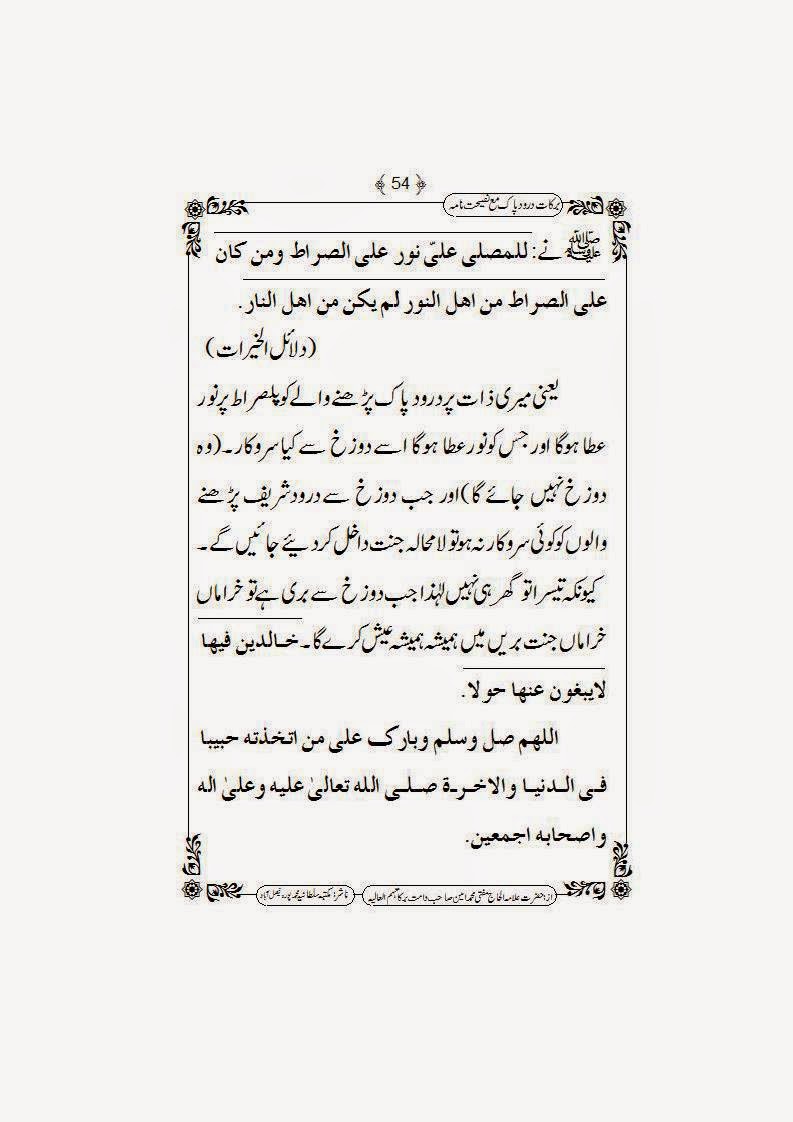 ﴿ 54 ﴾
برکات درود پاک مع نصیحت نامہ
ﷺ نے: للمصلی علیّ نور علی الصراط ومن کان
علی الصراط من اهل النور لم یکن من اهل النار.
(دلائل الخیرات)
یعنی میری ذات پر درود پاک پڑھنے والے کو پلصراط پر نور
عطا ہوگا اور جس کو نور عطا ہوگا اسے دوزخ سے کیا سروکار۔ (وہ
دوزخ نہیں جائے گا) اور جب دوزخ سے درود شریف پڑھنے
والوں کو کوئی سروکار نہ ہو تو لامحالہ جنت داخل کر دیئے جائیں گے۔
کیونکہ تیسرا تو گھر ہی نہیں لہٰذا جب دوزخ سے بری ہے تو خراماں
خراماں جنت بریں میں ہمیشہ ہمیشہ عیش کرے گا۔ خالدین فیها
لایبغون عنها حولا.
اللهم صل وسلم وبارک علی من اتخذته حبیبا
فی الدنیا والاخرة صلی الله تعالیٰ علیه وعلیٰ اله
واصحابه اجمعین.
از: حضرت علامہ الحاج مفتی محمد امین صاحب دامت برکاتہم العالیہ
ناشر: مکتبہ سلطانیہ محمد پورہ فیصل آباد